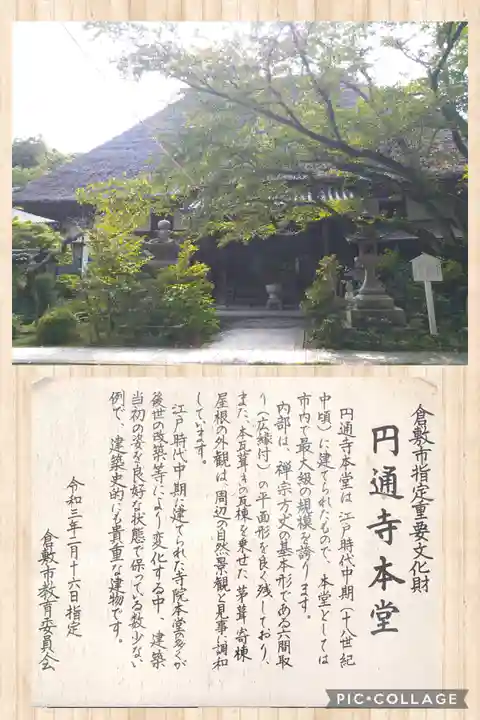 倉敷市指定重要文化財
円通寺本堂
円通寺本堂は江戸時代中期(十八世紀
中頃)に建てられたもので、本堂としては
市内で最大級の規模を誇ります。
内部は、禅宗方丈の基本形である六間取
り(広縁付)の平面形を良く残しており、
また、本瓦葺きの瓦棟を乗せた茅葺寄棟
屋根の外観は、周辺の自然景観と見事に調和
しています。
江戸時代中期に建てられた寺院本堂の多くが
後世の改築等により変化する中、建築
当初の姿を良好な状態で保っている数少ない
例で、建築史的にも貴重な建物です。
令和三年二月十六日指定
倉敷市教育委員会
PIC•COLLAGE